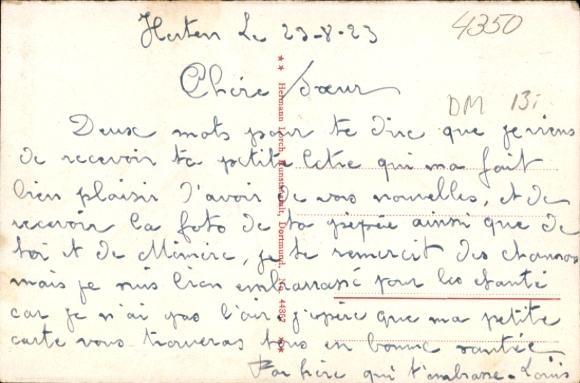 Herten Le 23-8-23
4350
Chère Sœur
DM 13i
Deux mots pour te dire que je viens
de recevoir ta petite letre qui ma fait
bien plaisir d'avoir de vos nouvelles, et de
recevoir la foto de ta pépée ainsi que de
toi et de Mémère, je te remercit des chansons
mais je suis bien embrassé pour les chanté
car je n'ai pas l'air j'espère que ma petite
carte vous trouveras tous en bonne santée
Ton frère qui t'embrasse - Louis
Hermann Lorch, Kunstanstalt, Dortmund. 44362